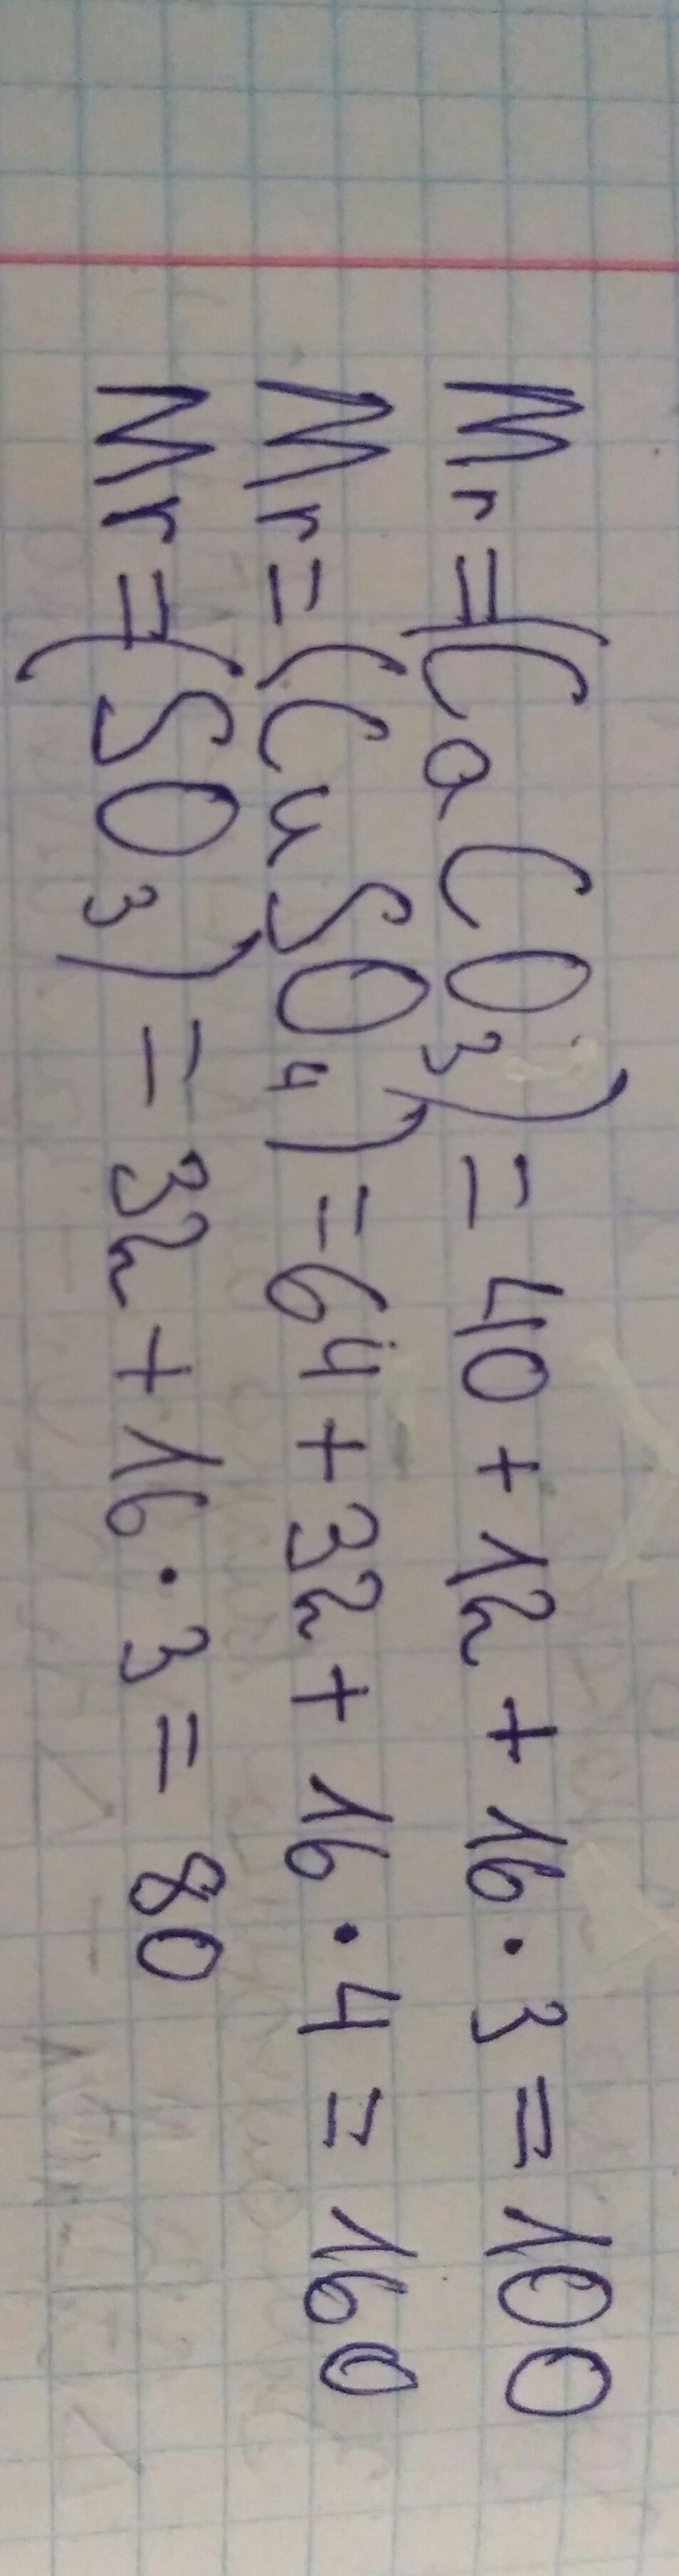 Mr=(CaCO₃) = 40 + 12 + 16 · 3 = 100
Mr=(CuSO₄) = 64 + 32 + 16 · 4 = 160
Mr=(SO₃) = 32 + 16 · 3 = 80